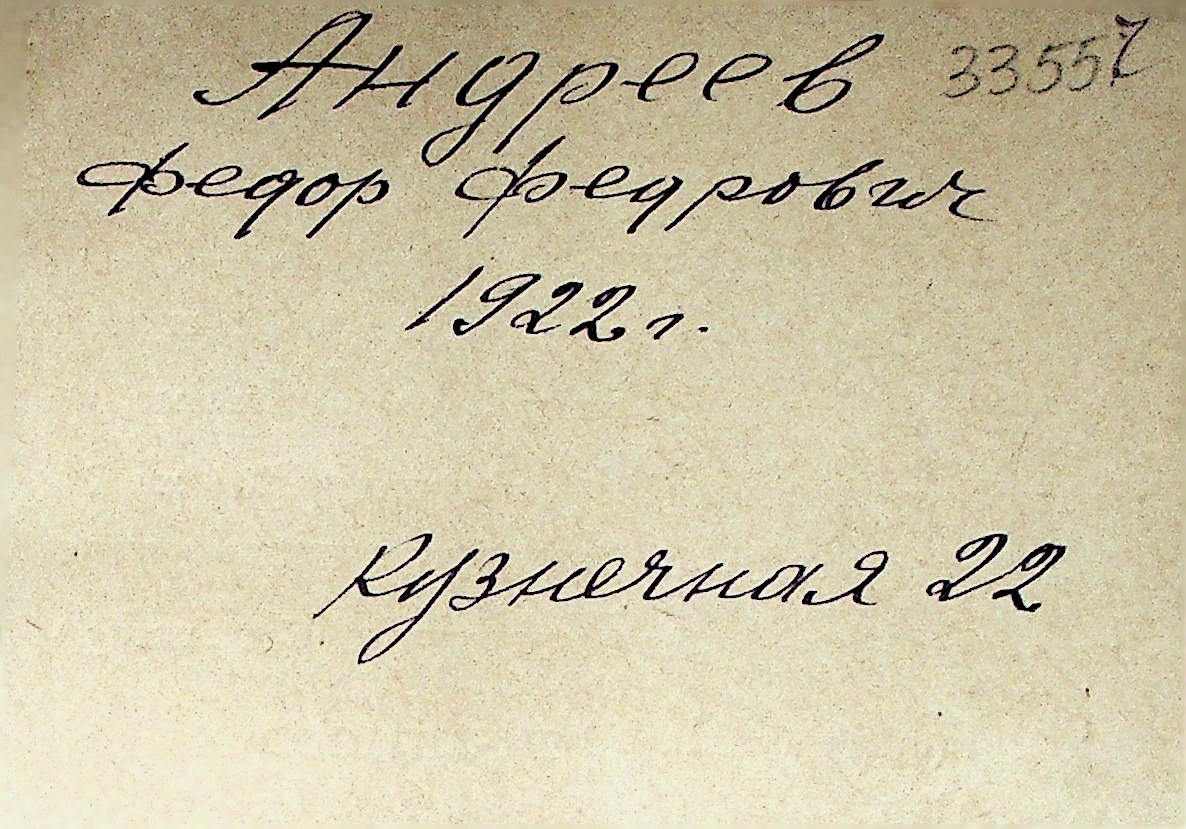 Андреев 33557
Федор Федрович
1922 г.
Кузнечная 22